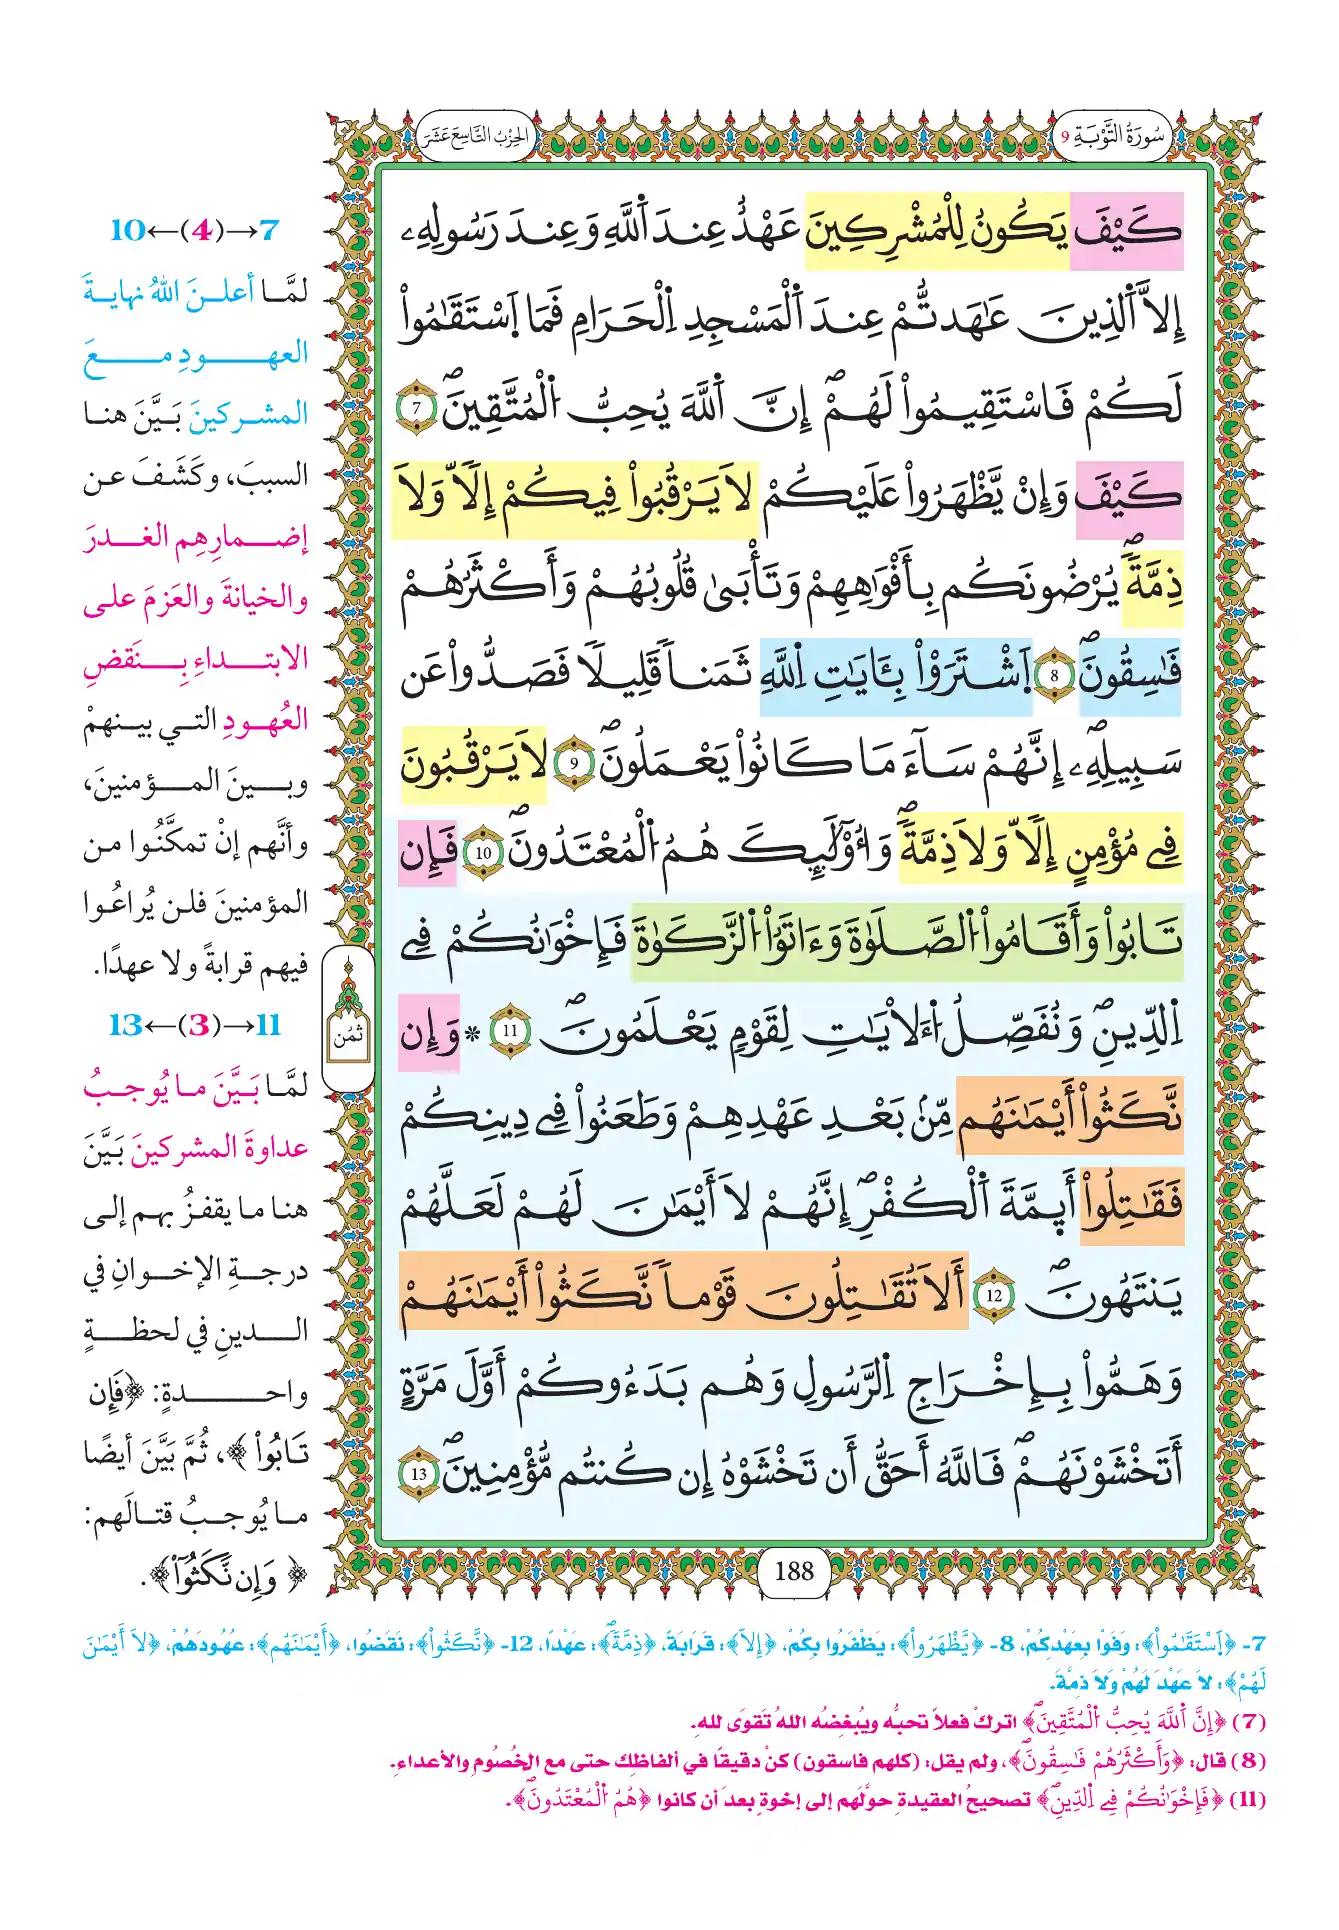 سُورَةُ التَّوْبَةِ 9
الحِزْبُ التَّاسِعَ عَشَرَ
كَيْفَ يَكُونُ لِلْمُشْرِكِينَ عَهْدٌ عِندَ اَ۬للَّهِ وَعِندَ رَسُولِهِۦ
إِلَّا اَ۬لذِينَ عَٰهَدتُّمْ عِندَ اَ۬لْمَسْجِدِ اِ۬لْحَرَامِ فَمَا اَ۪سْتَقَٰمُواْ
لَكُمْ فَاسْتَقِيمُواْ لَهُمْۖ إِنَّ اَ۬للَّهَ يُحِبُّ اُ۬لْمُتَّقِينَۖ 7
كَيْفَ وَإِنْ يَّظْهَرُواْ عَلَيْكُمْ لَا يَرْقُبُواْ فِيكُمْ إِلّاٗ وَلَا
ذِمَّةٗۖ يُرْضُونَكُم بِأَفْوَٰهِهِمْ وَتَأْبَىٰ قُلُوبُهُمْ وَأَكْثَرُهُمْ
فَٰسِقُونَۖ 8 اَ۪شْتَرَوْاْ بِـَٔايَٰتِ اِ۬للَّهِ ثَمَناٗ قَلِيلاٗ فَصَدُّواْ عَن
سَبِيلِهِۦۖ إِنَّهُمْ سَآءَ مَا كَانُواْ يَعْمَلُونَۖ 9 لَا يَرْقُبُونَ
فِے مُؤْمِنٍ إِلّاٗ وَلَا ذِمَّةٗۖ وَأُوْلَٰٓئِكَ هُمُ اُ۬لْمُعْتَدُونَۖ 10 فَإِن
تَابُواْ وَأَقَامُواْ اُ۬لصَّلَوٰةَ وَءَاتَوُاْ اُ۬لزَّكَوٰةَ فَإِخْوَٰنُكُمْ فِے
اِ۬لدِّينِۖ وَنُفَصِّلُ اُ۬لْأٓيَٰتِ لِقَوْمٖ يَعْلَمُونَۖ 11 * وَإِن
نَّكَثُواْ أَيْمَٰنَهُم مِّنۢ بَعْدِ عَهْدِهِمْ وَطَعَنُواْ فِے دِينِكُمْ
فَقَٰتِلُواْ أَئِمَّةَ اَ۬لْكُفْرِۖ إِنَّهُمْ لَا أَيْمَٰنَ لَهُمْ لَعَلَّهُمْ
يَنتَهُونَۖ 12 أَلَا تُقَٰتِلُونَ قَوْماٗ نَّكَثُواْ أَيْمَٰنَهُمْ
وَهَمُّواْ بِإِخْرَاجِ اِ۬لرَّسُولِ وَهُم بَدَءُوكُمْ أَوَّلَ مَرَّةٍ
أَتَخْشَوْنَهُمْۖ فَاللَّهُ أَحَقُّ أَن تَخْشَوْهُ إِن كُنتُم مُّؤْمِنِينَۖ 13
188
ثُمُن
7→(4)←10
لمَّا أعلنَ اللهُ نهايةَ
العهودِ معَ
المشركينَ بَيَّنَ هنا
السببَ، وكَشَفَ عن
إضمارِهِم الغدرَ
والخيانةَ والعَزمَ على
الابتداءِ بِنَقضِ
العُهودِ التي بينهمْ
وبينَ المؤمنينَ،
وأنَّهم إنْ تمكَّنُوا من
المؤمنينَ فلن يُراعُوا
فيهم قرابةً ولا عهدًا.
11→(3)←13
لمَّا بَيَّنَ ما يُوجبُ
عداوةَ المشركينَ بَيَّنَ
هنا ما يقفزُ بهم إلى
درجةِ الإخوانِ في
الدينِ في لحظةٍ
واحدةٍ: ﴿فَإِن
تَابُواْ﴾، ثُمَّ بَيَّنَ أيضًا
ما يُوجبُ قتالَهم:
﴿وَإِن نَّكَثُوٓاْ﴾.
7- ﴿اَ۪سْتَقَٰمُواْ﴾: وَفَوْا بِعَهْدِكُمْ، 8- ﴿يَّظْهَرُواْ﴾: يَظْفَرُوا بِكُمْ، ﴿إِلّاٗ﴾: قَرَابَةً، ﴿ذِمَّةٗۖ﴾: عَهْدًا، 12- ﴿نَّكَثُواْ﴾: نَقَضُوا، ﴿أَيْمَٰنَهُم﴾: عُهُودَهُمْ، ﴿لَا أَيْمَٰنَ
لَهُمْ﴾: لاَ عَهْدَ لَهُمْ وَلاَ ذِمَّةَ.
(7) ﴿إِنَّ اَ۬للَّهَ يُحِبُّ اُ۬لْمُتَّقِينَۖ﴾ اتركْ فعلًا تحبُّه ويُبغضُه اللهُ تَقوَى لله.
(8) قال: ﴿وَأَكْثَرُهُمْ فَٰسِقُونَۖ﴾، ولم يقل: (كلهم فاسقون) كنْ دقيقًا في ألفاظِك حتى مع الخُصُومِ والأعداءِ.
(11) ﴿فَإِخْوَٰنُكُمْ فِے اِ۬لدِّينِۖ﴾ تصحيحُ العقيدةِ حوَّلَهم إلى إخوةٍ بعدَ أن كانوا ﴿هُمُ اُ۬لْمُعْتَدُونَۖ﴾.